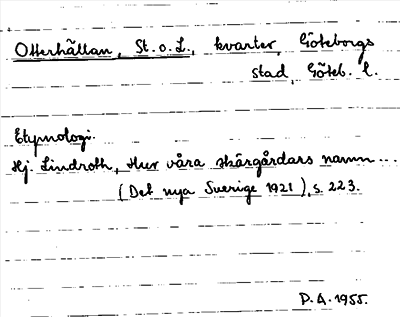 Otterhällan, St. o. L., kvarter, Göteborgs
stad, Göteb. l.
Etymologi.
Hj. Lindroth, Hur våra skärgårdars namn ...
(Det nya Sverige 1921), s. 223.
P. A. 1955.